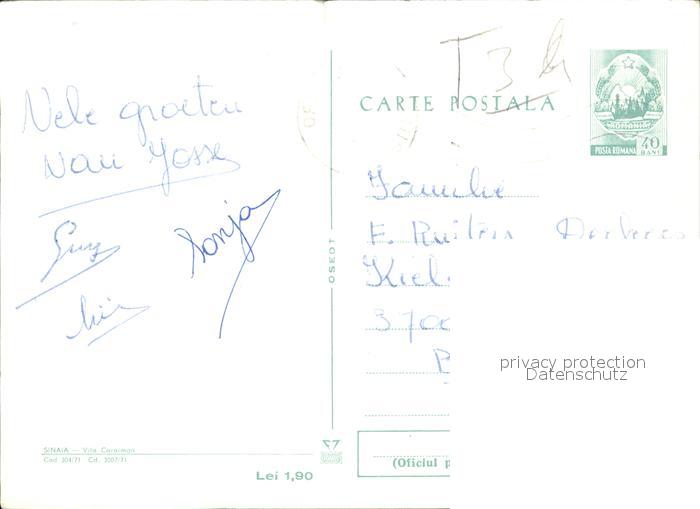 Vele groeten
van Josse
Guy
Sonja
SINAIA — Vila Caraiman
Cod 304/71 Cd. 3007/71
Lei 1,90
OSEDT
T
CARTE POSTALA
POSTA ROMANA 40 BANI
Familie
F.
Kiel
370
privacy protection
Datenschutz
(Oficiul p